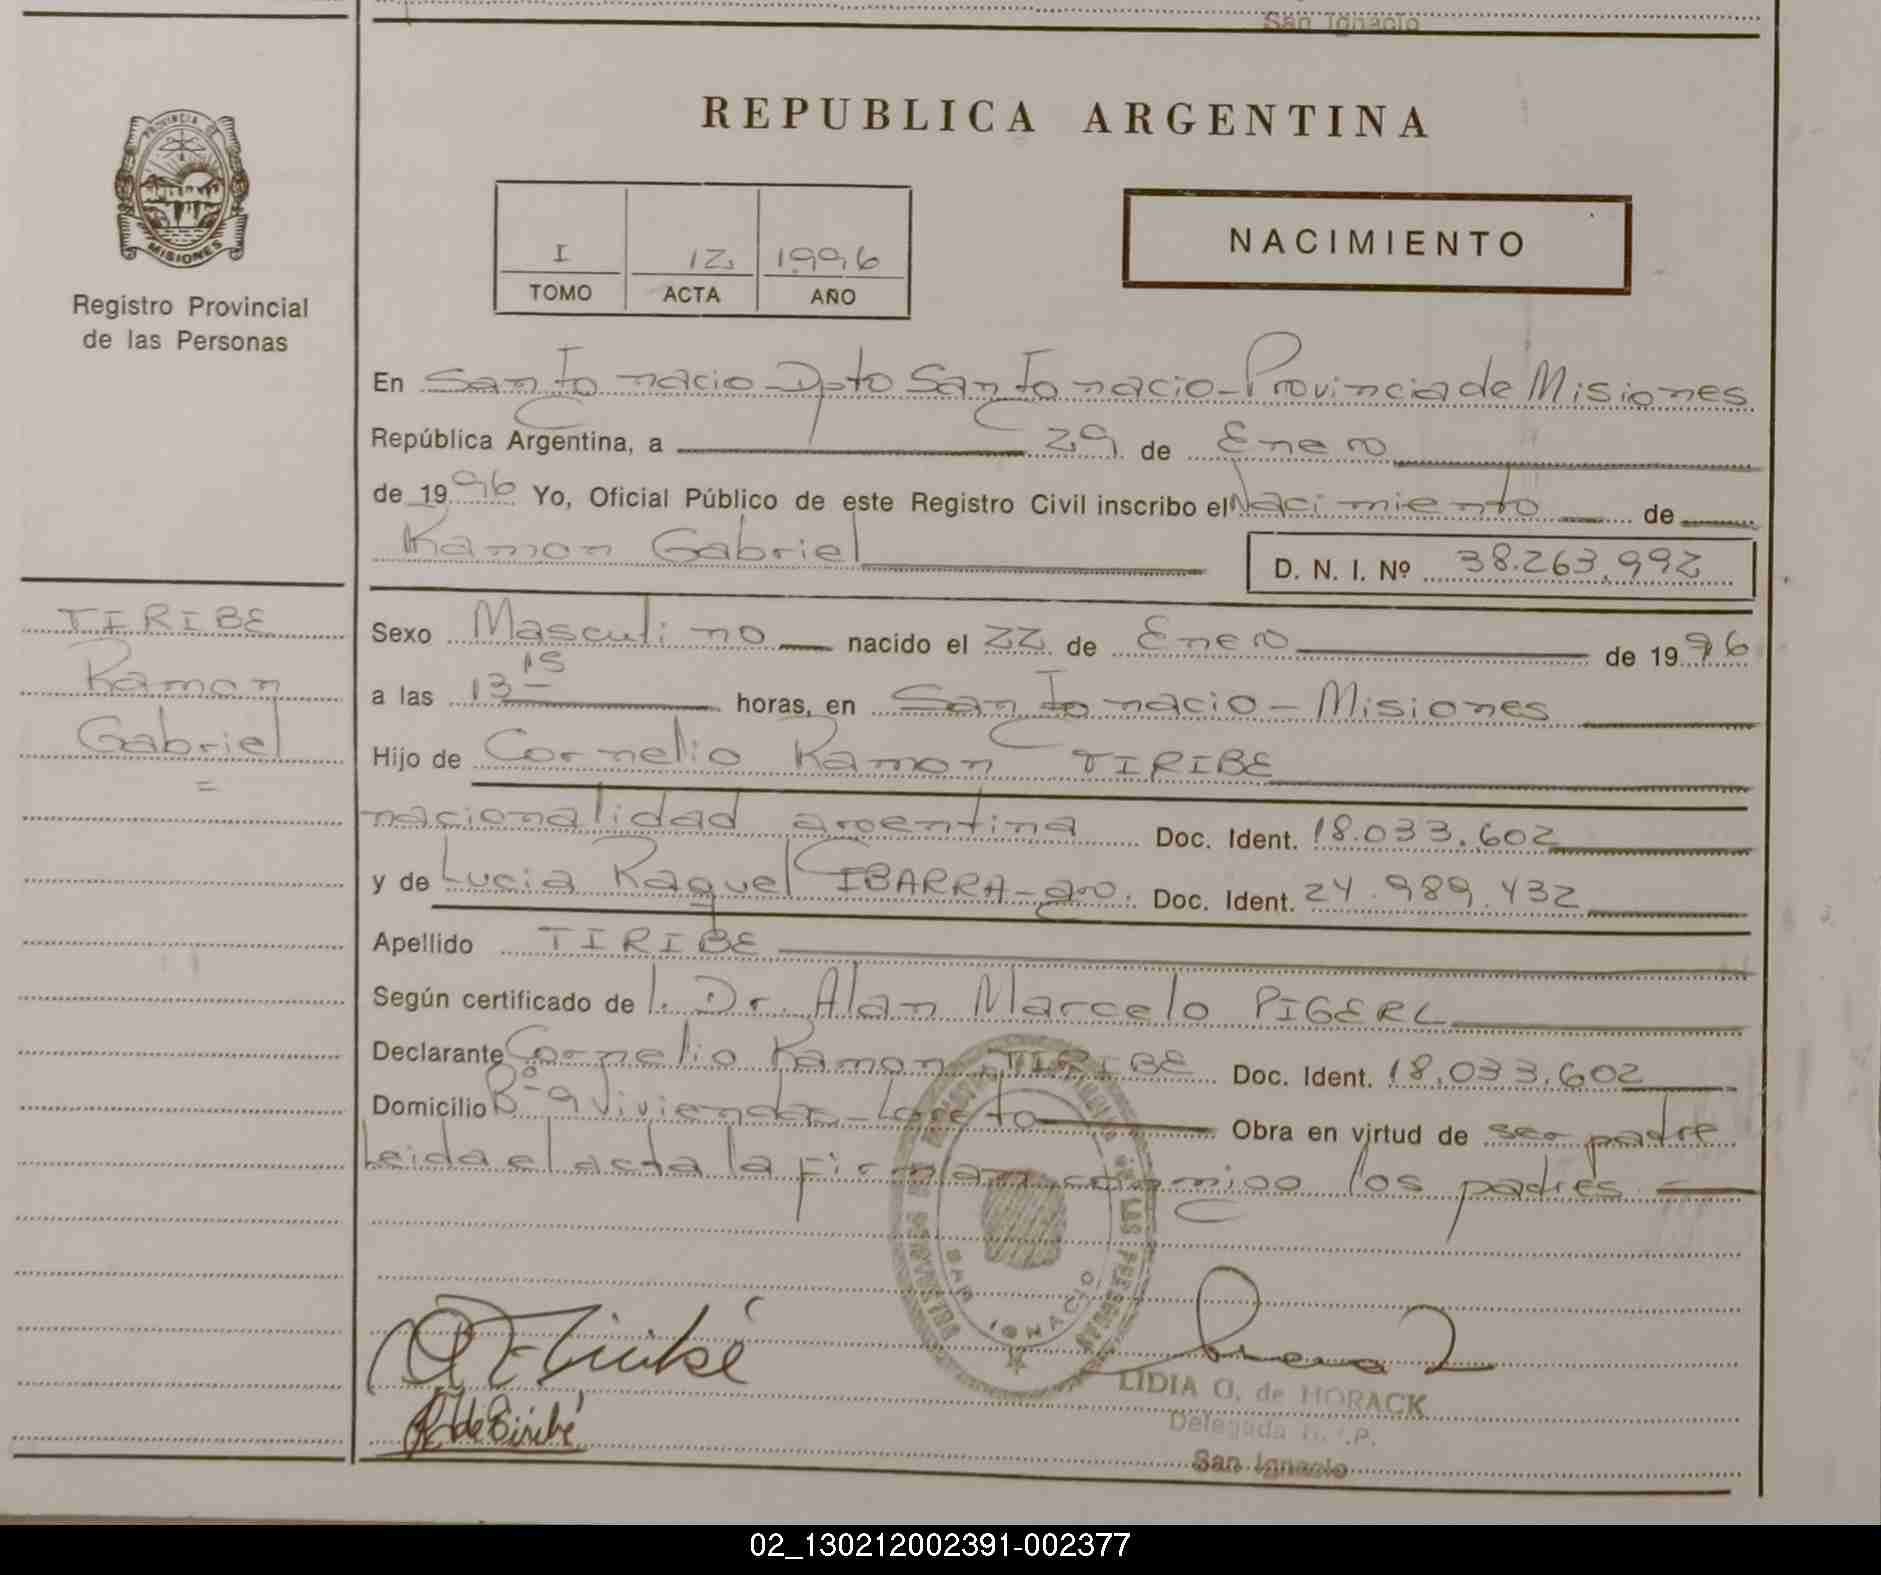 San Ignacio
PROVINCIA DE
MISIONES
Registro Provincial
de las Personas
REPUBLICA ARGENTINA
I 12 1996
TOMO ACTA AÑO
NACIMIENTO
En San Ignacio - Dpto San Ignacio - Provincia de Misiones
República Argentina, a 29 de Enero
de 1996 Yo, Oficial Público de este Registro Civil inscribo el Nacimiento de
Ramon Gabriel
D. N. I. Nº 38.263.992
TIRIBE
Ramon
Gabriel
=
Sexo Masculino nacido el 22 de Enero de 1996
a las 13 15 horas, en San Ignacio - Misiones
Hijo de Cornelio Ramon TIRIBE
nacionalidad argentina Doc. Ident. 18.033.602
y de Lucia Raquel IBARRA - arg. Doc. Ident. 24.989.432
Apellido TIRIBE
Según certificado de l. Dr. Alan Marcelo PIGERL
Declarante Cornelio Ramon TIRIBE Doc. Ident. 18.033.602
Domicilio Bº 9 Viviendas - Loreto Obra en virtud de ser padre
Leida el acta la firman conmigo los padres
SAN IGNACIO
R. de Tiribé
LIDIA O. de HORACK
Delegada R. .P.
San Ignacio
02_130212002391-002377